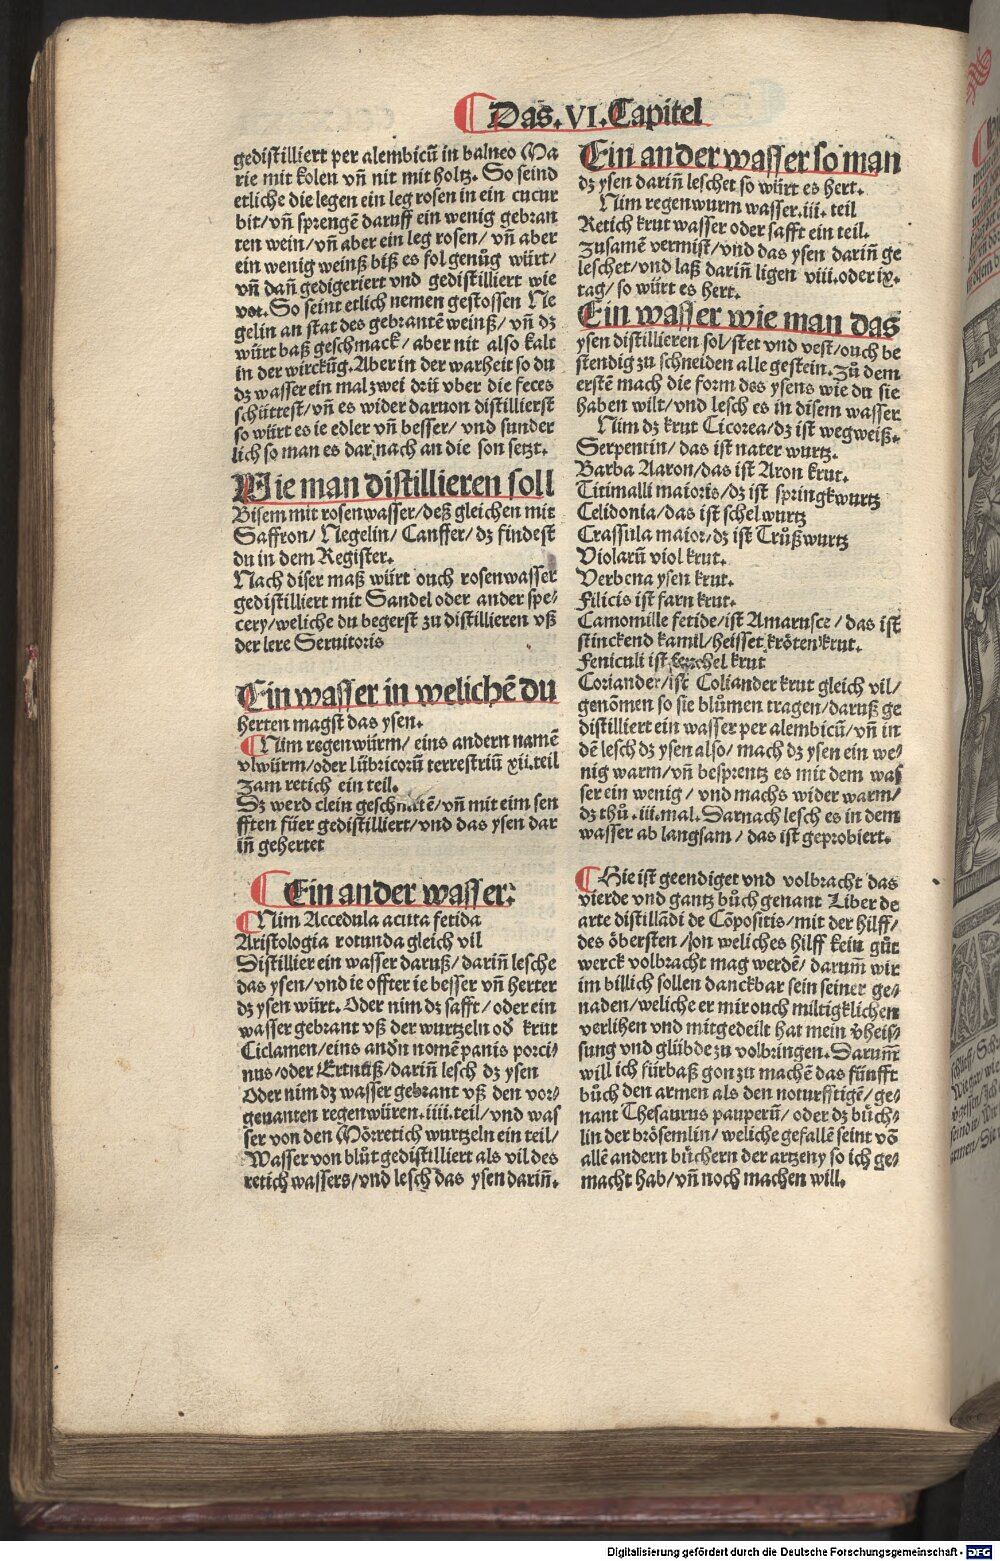 Das .VI. Capitel
gedistilliert per alembicū in balneo Ma
rie mit kolen vñ nit mit holtz. So seind
etliche die legen ein leg rosen in ein cucur
bit/vñ sprengē daruff ein wenig gebran
ten wein/vñ aber ein leg rosen/ vñ aber
ein wenig weinß biß es fol genůg würt/
vñ dañ gedigeriert vnd gedistilliert wie
vor. So seint etlich nemen gestossen Ne
gelin an stat des gebrantē weinß/ vñ dz
würt baß geschmack/ aber nit also kalt
in der wirckūg. Aber in der warheit so du
dz wasser ein mal zwei drü vber die feces
schüttest/vñ es wider daruon distillierst
so würt es ie edler vñ besser/ vnd sunder
lich so man es dar nach an die son setzt.
Wie man distillieren soll
Bisem mit rosenwasser/deß gleichen mit
Saffron/ Negelin/ Canffer/ dz findest
du in dem Register.
Nach diser maß würt ouch rosenwasser
gedistilliert mit Sandel oder ander spe-
cery/weliche du begerst zu distillieren vß
der lere Seruitoris
Ein wasser in welichē du
herten magst das ysen.
Nim regenwürm/ eins andern namē
vlwürm/oder lübricorū terrestriū xij.teil
zam retich ein teil.
Dz werd clein geschnitē/vñ mit eim sen
fften füer gedistilliert/vnd das ysen dar
iñ gehertet
Ein ander wasser:
Nim Accedula acuta fetida
Aristologia rotunda gleich vil
Distillier ein wasser daruß/ dariñ lesche
das ysen/vnd ie offter ie besser vñ herter
dz ysen würt. Oder nim dz safft/ oder ein
wasser gebrant vß der wurtzeln od̄ krut
Ciclamen/eins andn̄ nomē panis porci-
nus/oder Ertnüß/dariñ lesch dz ysen
Oder nim dz wasser gebrant vß den vor-
genanten regenwüren.iiij.teil/vnd was
ser von den Mörretich wurtzeln ein teil/
Wasser von blůt gedistilliert als vil des
retich wassers/vnd lesch das ysen dariñ.
Ein ander wasser so man
dz ysen dariñ leschet so würt es hert.
Nim regenwurm wasser.iij. teil
Retich krut wasser oder safft ein teil.
zusamē vermist/vnd das ysen dariñ ge
leschet/vnd laß dariñ ligen viij.oder ix.
tag/ so würt es hert.
Ein wasser wie man das
ysen distillieren sol/stet vnd vest/ouch be
stendig zu schneiden alle gestein. Zů dem
erstē mach die form des ysens wie du sie
haben wilt/vnd lesch es in disem wasser
Nim dz krut Cicorea/dz ist wegweiß.
Serpentin/ das ist nater wurtz.
Barba Aaron/das ist Aron krut.
Titimalli maioris/dz ist springkwurtz
Celidonia/das ist schel wurtz
Crassula maior/dz ist Trůßwurtz
Violarū viol krut.
Verbena ysen krut.
Filicis ist farn krut.
Camomille fetide/ist Amarusce/ das ist
stinckend kamil/heisset krötenkrut.
Feniculi ist fenchel krut
Coriander/ist Coliander krut gleich vil/
genōmen so sie blůmen tragen/daruß ge
distilliert ein wasser per alembicū/vñ in
dē lesch dz ysen also/ mach dz ysen ein we-
nig warm/vñ besprentz es mit dem was
ser ein wenig/ vnd machs wider warm/
dz thů .iij.mal. Darnach lesch es in dem
wasser ab langsam/ das ist geprobiert.
Hie ist geendiget vnd volbracht das
vierde vnd gantz bůch genant Liber de
arte distillādi de Cōpositis/mit der hilff/
des öbersten/on weliches hilff kein gůt
werck volbracht mag werdē/ darum̄ wir
im billich sollen danckbar sein seiner ge-
naden/weliche er mir ouch miltigklichen
verlihen vnd mitgedeilt hat mein v̄heis-
sung vnd glübde zu volbringen. Darum̄
will ich fürbaß gon zu machē das fünfft
bůch den armen als den noturfftigē/ge-
nant Thesaurus pauperū/ oder dz bůch-
lin der brösemlin/ weliche gefallē seint vō
allē andern bůchern der artzeny so ich ge-
macht hab/vñ noch machen will.
Digitalisierung gefördert durch die Deutsche Forschungsgemeinschaft - DFG